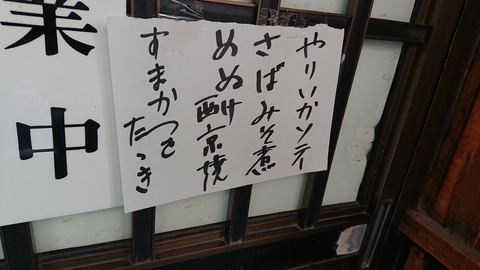 やりいかソテー
さばみそ煮
めぬけ西京焼
すまかつを
たゝき
業中